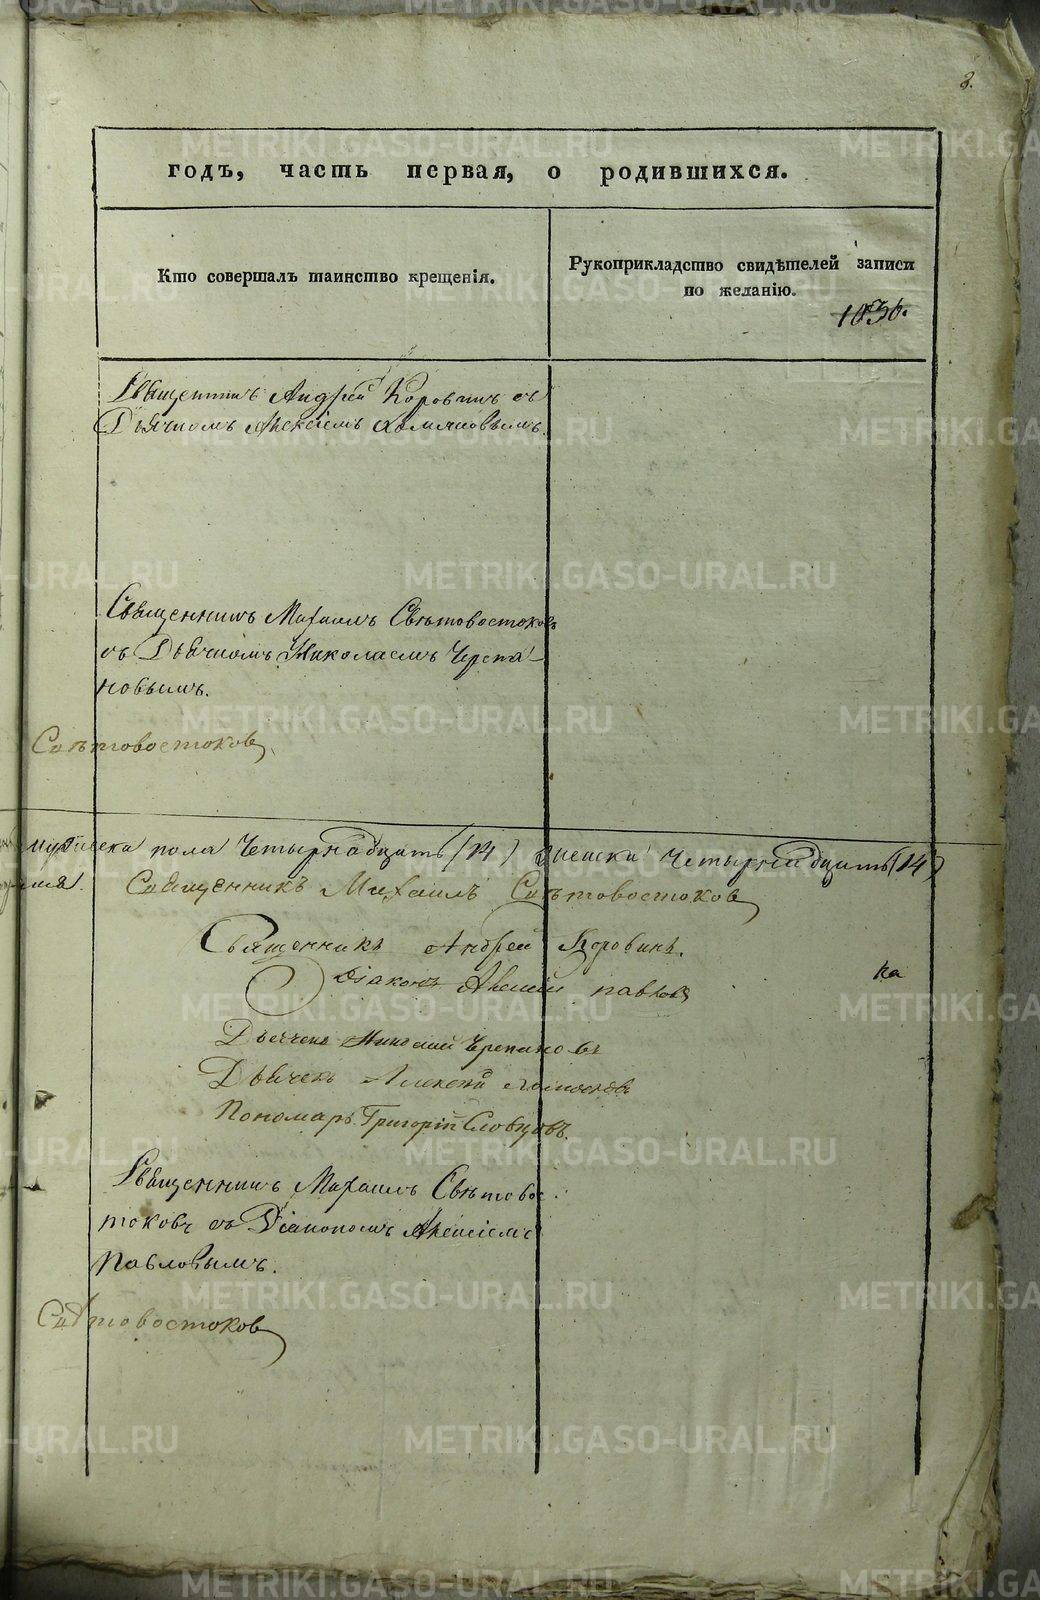 8.
годъ, часть первая, о родившихся.
Кто совершалъ таинство крещенія.
Рукоприкладство свидѣтелей записи
по желанію.
1836.
Священникъ Андрей Коровинъ съ
Дьячкомъ Алексіемъ
Священникъ Михаилъ Свѣтовостоковъ
съ Дьячкомъ Николаемъ Черепа-
новымъ.
Свѣтовостоковъ
пола Четырнадцать (14) женска Четырнадцать (14)
Священникъ Михаилъ Свѣтовостоковъ
Священникъ Андрей Коровинъ.
Діаконъ Алексій Павловъ
на
Дьячекъ Николай Черепановъ
Дьячекъ Алексѣй
Пономарь Григорій Словцовъ.
Священникъ Михаилъ Свѣтовос
токовъ съ Діакономъ Алексіемъ
Павловымъ.
Свѣтовостоковъ
METRIKI.GASO-URAL.RU